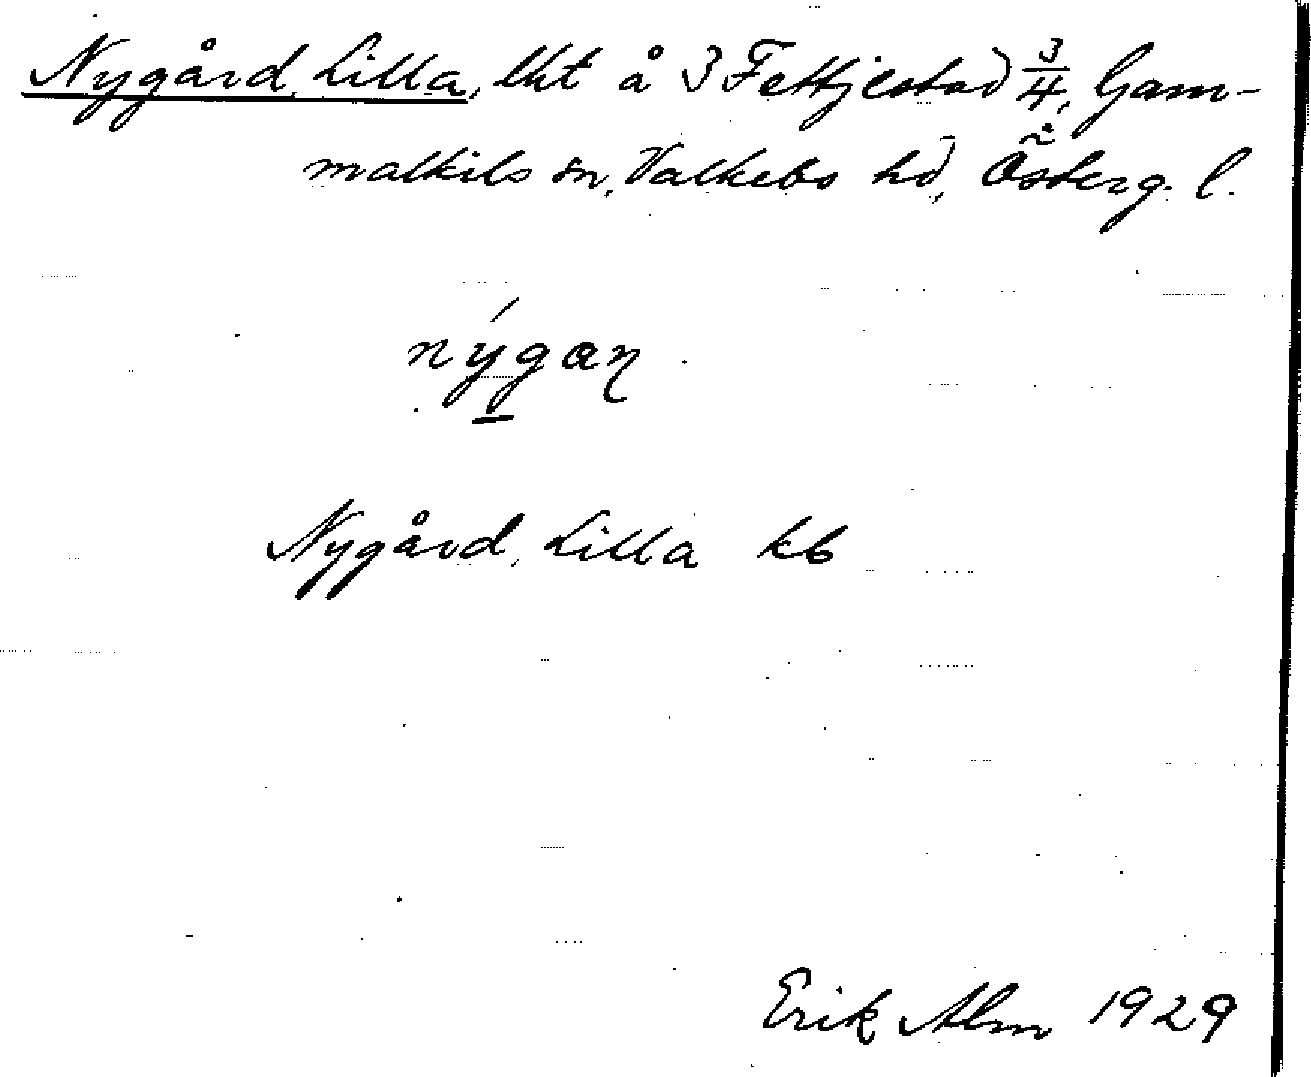 Nygård, Lilla, lht å 3 Fettjestad 3/4, Gam-
malkils sn, Valkebo hd, Österg. l.
nýgaɳ
Nygård, Lilla kb
Erik Alm 1929